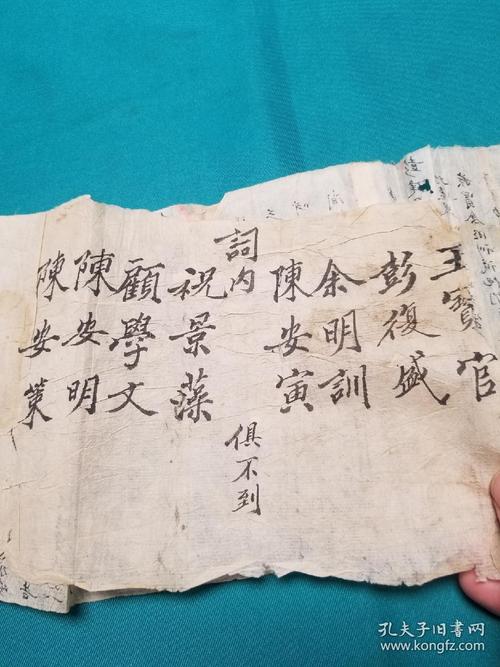 王寶官
彭復盛
余明訓
陳安寅
詞內
俱不到
祝景藻
顧學文
陳安明
陳安策
孔夫子旧书网
www.kongfz.com